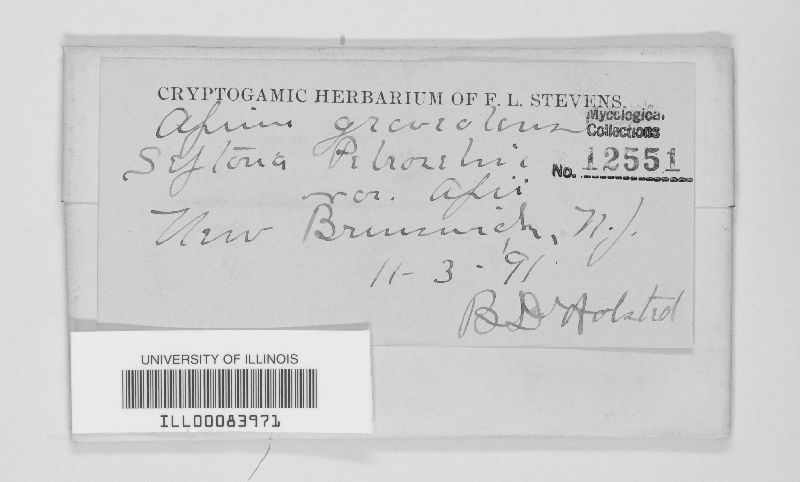 CRYPTOGAMIC HERBARIUM OF F. L. STEVENS.
Apium graveolens
Mycological
Collections
No. 12551
Septoria Petroselini
var. Apii
New Brunswick, N.J.
11-3-91
B D Halsted
UNIVERSITY OF ILLINOIS
ILL00083971